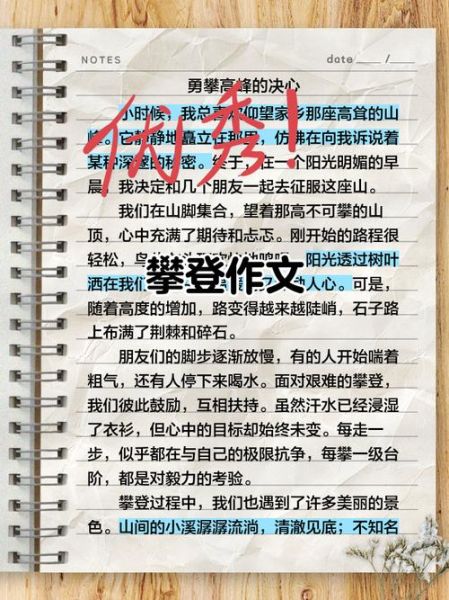 NOTES
date ___ /___
勇攀高峰的决心
优秀!
小时候,我总喜欢仰望家乡那座高耸的山
峰。它静静地矗立在那里,仿佛在向我诉说着
某种深邃的秘密。终于,在一个阳光明媚的早
晨,我决定和几个朋友一起去征服这座山。
我们在山脚集合,望着那高不可攀的山
顶,心中充满了期待和忐忑。刚开始的路程很
轻松,鸟 阳光透过树叶
攀登作文
洒在我们 动人心。可是,
随着高度的增加,路变得越来越陡峭,石子路
上布满了荆棘和碎石。
朋友们的脚步逐渐放慢,有的人开始喘着
粗气,还有人停下来喝水。面对艰难的攀登,
我们彼此鼓励,互相扶持。虽然汗水已经浸湿
了衣衫,但心中的目标却始终未变。每走一
步,似乎都在与自己的极限抗争,每攀一级台
阶,都是对毅力的考验。
攀登过程中,我们也遇到了许多美丽的景
色。山间的小溪潺潺流淌,清澈见底;不知名